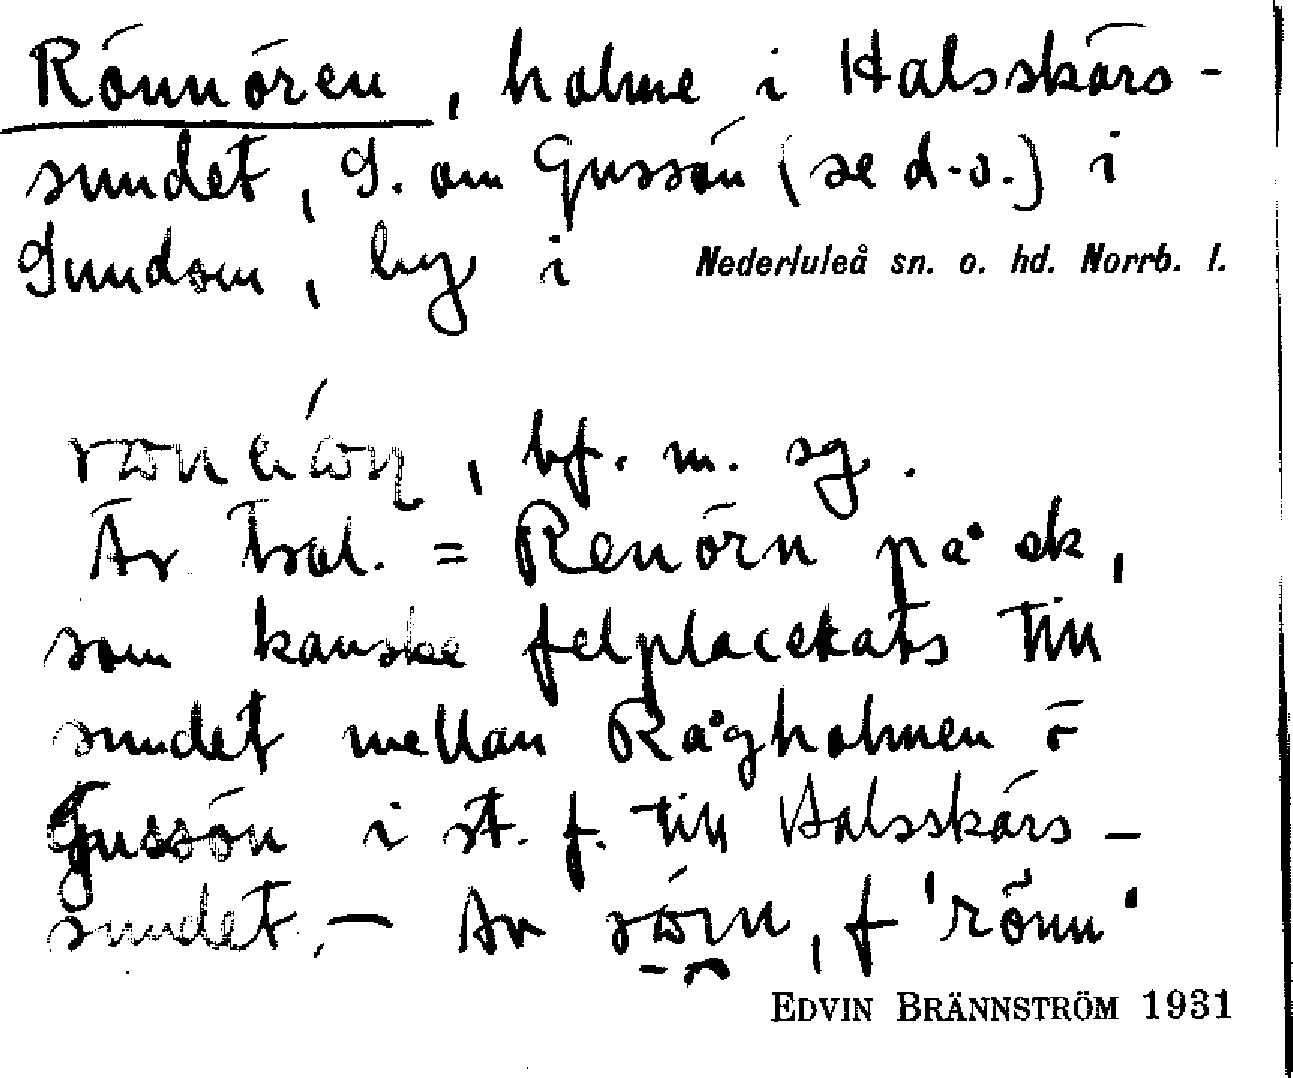 Rönnören, holme i Halsskärs-
sundet, S. om Gussön (se d.o.) i
Sundom, by i Nederluleå sn. o. hd. Norrb. l.
, bf. m. sg.
Är trol. = Renörn på ek,
som kanske felplacekats till
sundet mellan Rågholmen o
Gussön i st. f. till Halsskärs-
sundet. – Av , f 'rönn'
EDVIN BRÄNNSTRÖM 1931